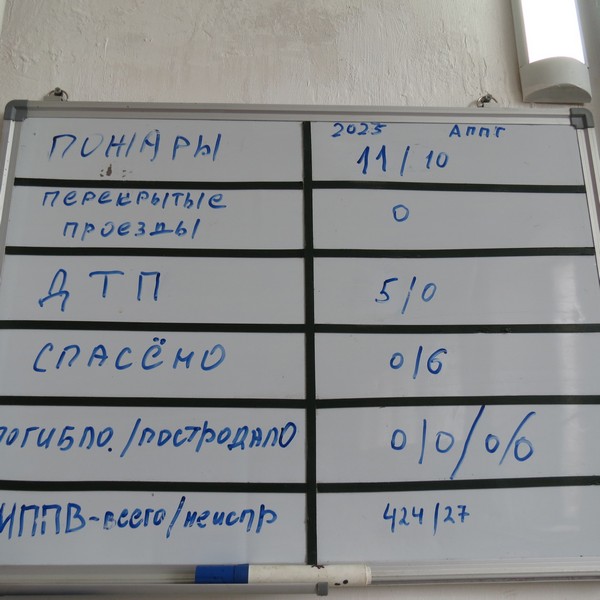 2023 АППГ
ПОЖАРЫ 11/10
ПЕРЕКРЫТЫЕ
ПРОЕЗДЫ 0
ДТП 5/0
СПАСЁНО 0/6
ПОГИБЛО./ПОСТРОДАЛО 0/0/0/0
ИППВ-всего/неиспр 424/27